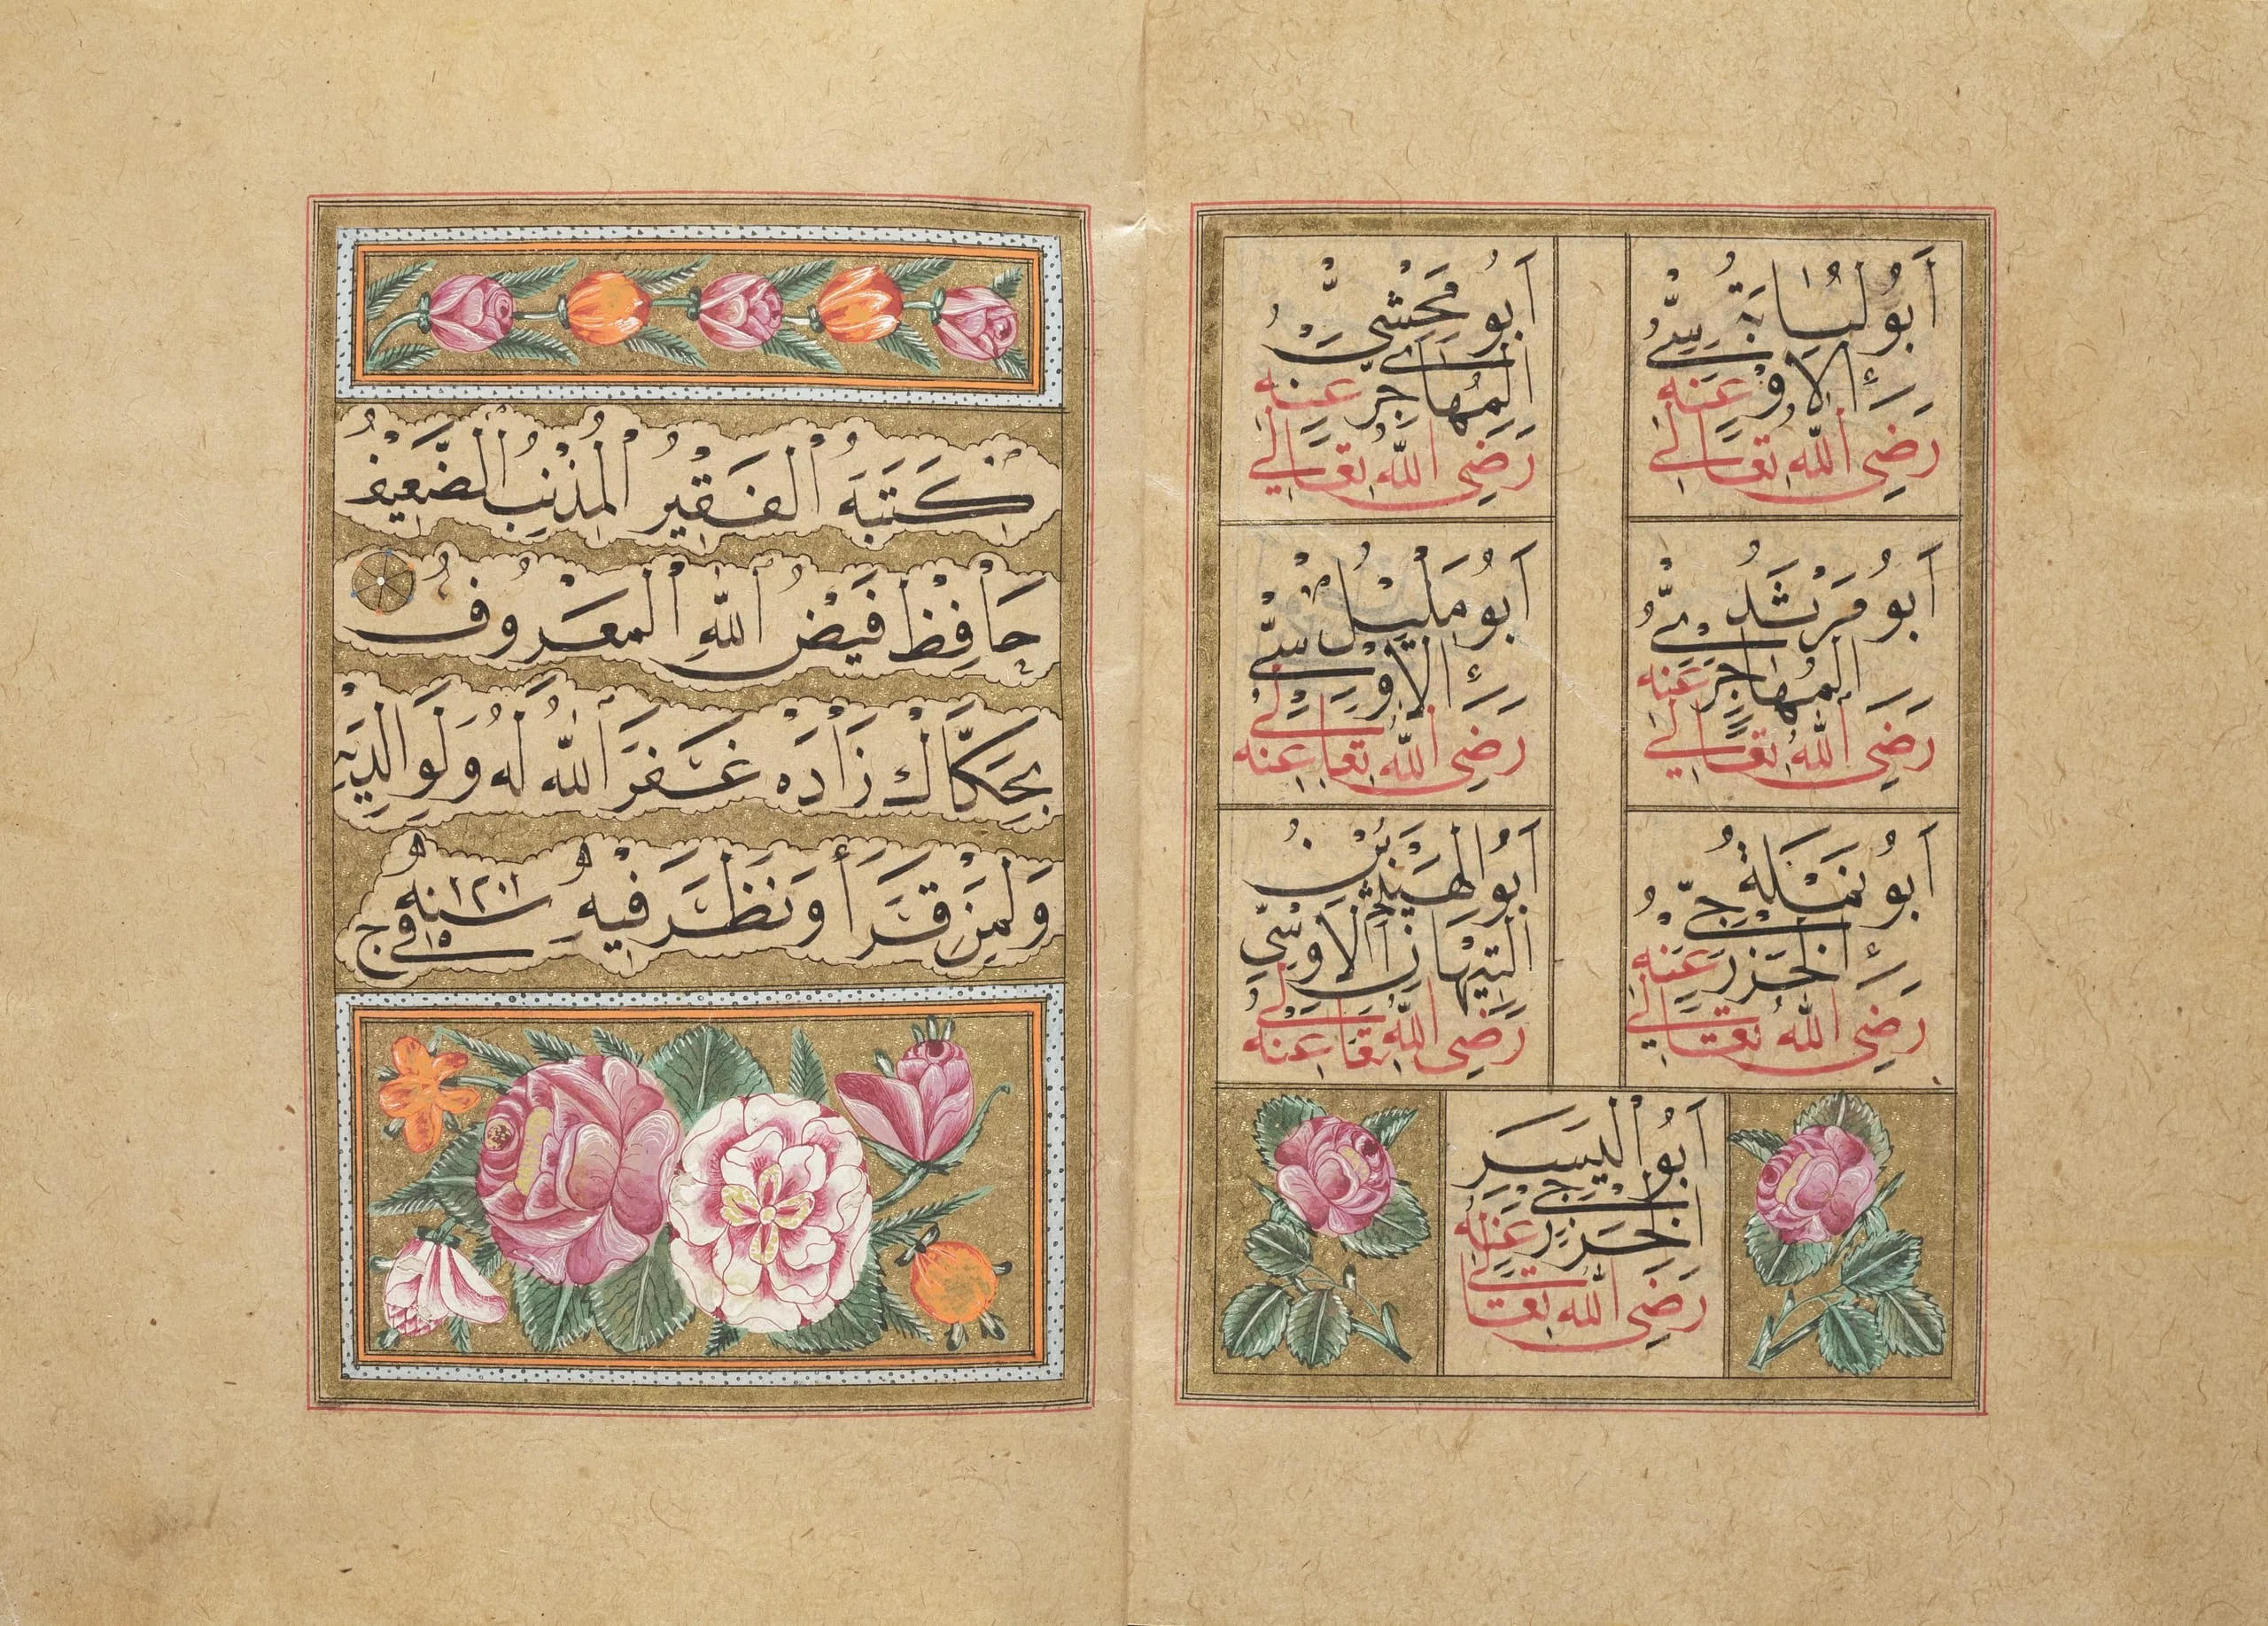 أَبُو لُبَابَةُ
الْاَوْسِيُّ
رَضِيَ اللّٰهُ تَعَالٰى عَنْهِ
أَبُو مَخْشِيٍّ
الْمُهَاجِرِيُّ
رَضِيَ اللّٰهُ تَعَالٰى عَنْهِ
أَبُو مَرْثَدُ
الْمُهَاجِرِيُّ
رَضِيَ اللّٰهُ تَعَالٰى عَنْهِ
أَبُو مُلَيْلُ
الْاَوْسِيُّ
رَضِيَ اللّٰهُ تَعَالٰى عَنْهُ
أَبُو نَمْلَةُ
الْخَزْرَجِيُّ
رَضِيَ اللّٰهُ تَعَالٰى عَنْهِ
أَبُو الْهَيْثَمِ بْنُ
التَّيْهَانِ الْاَوْسِيِّ
رَضِيَ اللّٰهُ تَعَالٰى عَنْهُ
أَبُو الْيَسَرِ
الْخَزْرَجِيُّ
رَضِيَ اللّٰهُ تَعَالٰى عَنْهِ
كَتَبَهُ الْفَقِيْرُ الْمُذْنِبُ الضَّعِيْفُ
حَافِظْ فَيْضُ اللّٰهِ الْمَعْرُوفُ
بِحَكَّاكْ زَادَه غَفَرَ اللّٰهُ لَهُ وَلِوَالِدَيْهِ
وَلِمَنْ قَرَأَ وَنَظَرَ فِيْهِ سنه ١٢٠١
في ١٥ ج